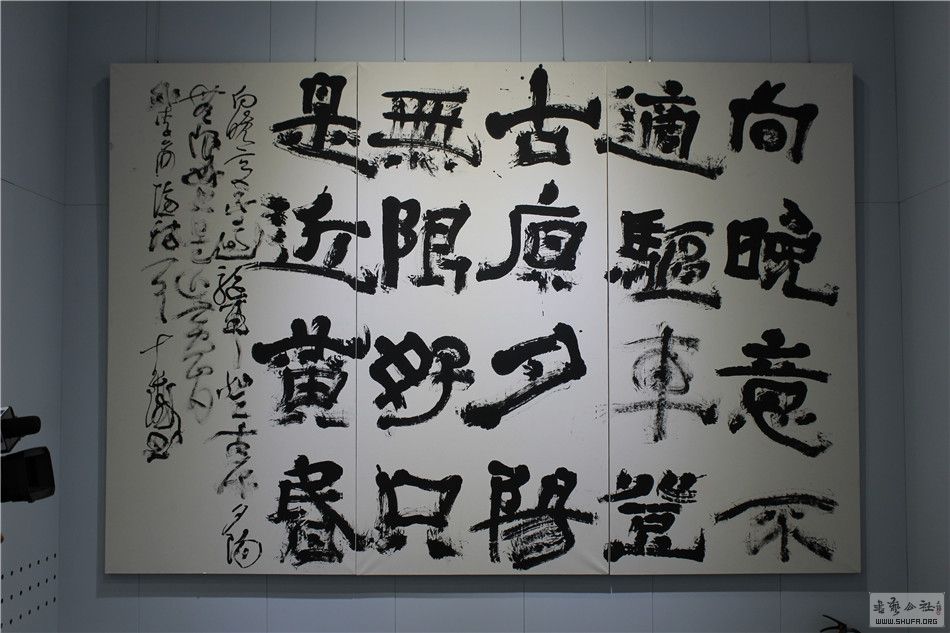 向晚意不
適驅車登
古原夕陽
無限好只
是近黄昏
向晚意不適驅車登古原夕陽
無限好只是近黄昏
李商隐詩一
書藝公社
WWW.SHUFA.ORG